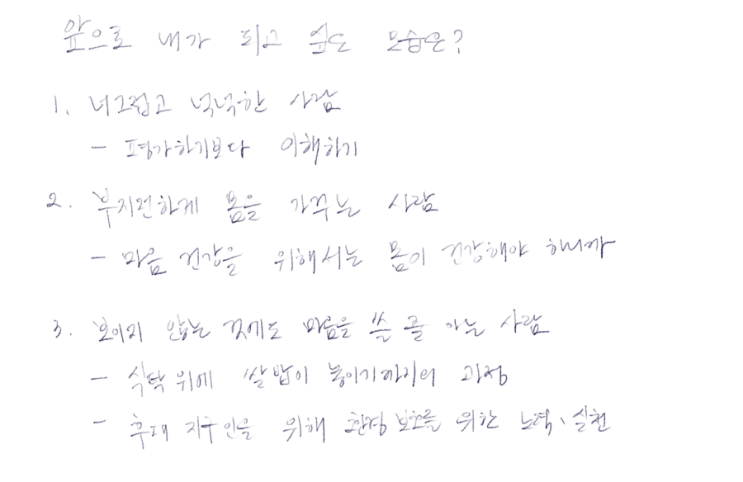 앞으로 내가 되고 싶은 모습은?
1. 너그럽고 넉넉한 사람
- 평가하기보다 이해하기
2. 부지런하게 몸을 가꾸는 사람
- 마음 건강을 위해서는 몸이 건강해야 하니까
3. 보이지 않는 것에도 마음을 쓸 줄 아는 사람
- 식탁 위에 쌀밥이 놓이기까지의 과정
- 후대 지구인을 위해 환경 보호를 위한 노력、실천